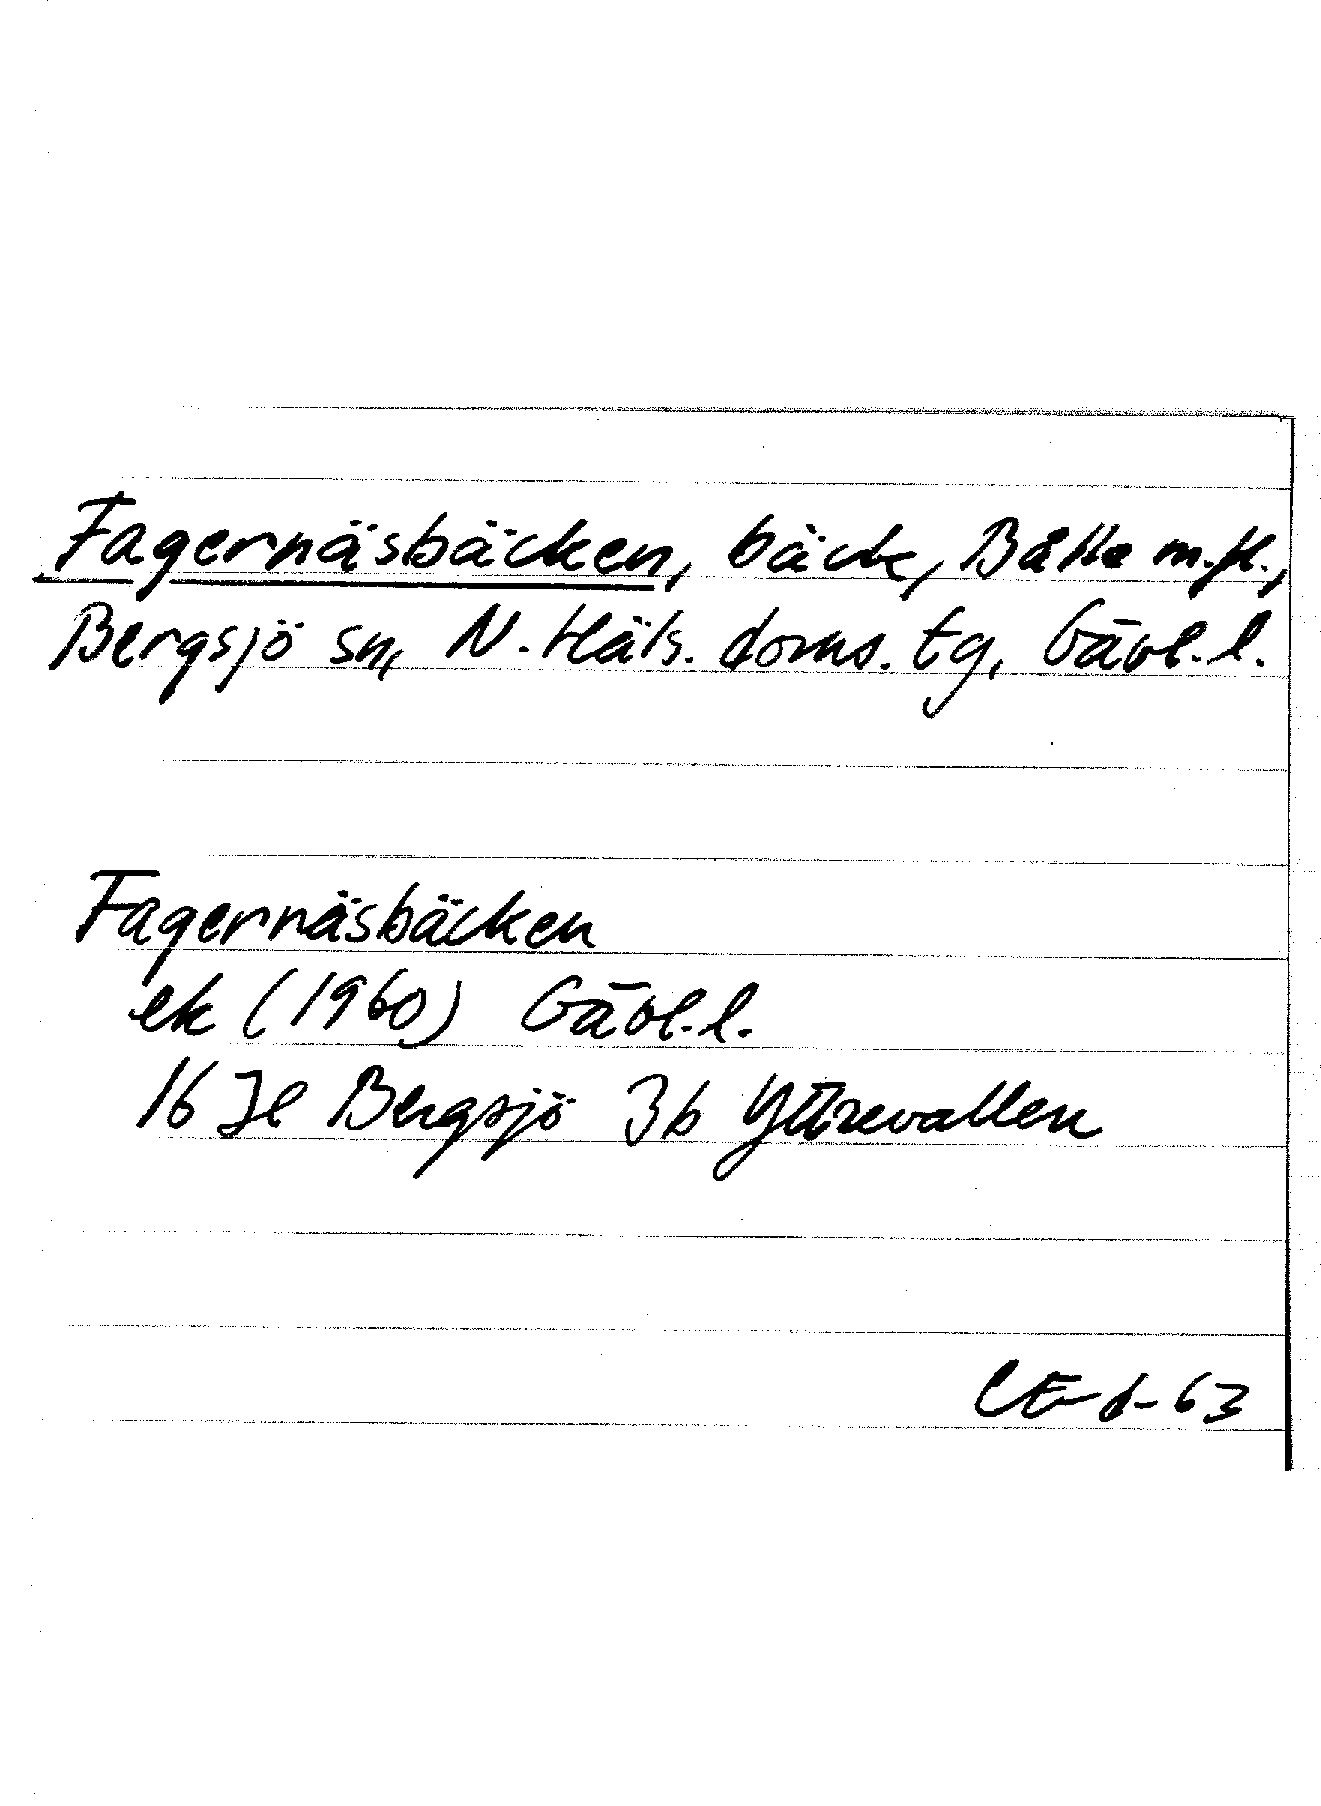 Fagernäsbäcken, bäck, Bålle m.fl.,
Bergsjö sn, N. Häls. doms. tg, Gävl. l.
Fagernäsbäcken
ek (1960) Gävl. l.
16 Je Bergsjö 3b Yttrevallen
CE-d-63